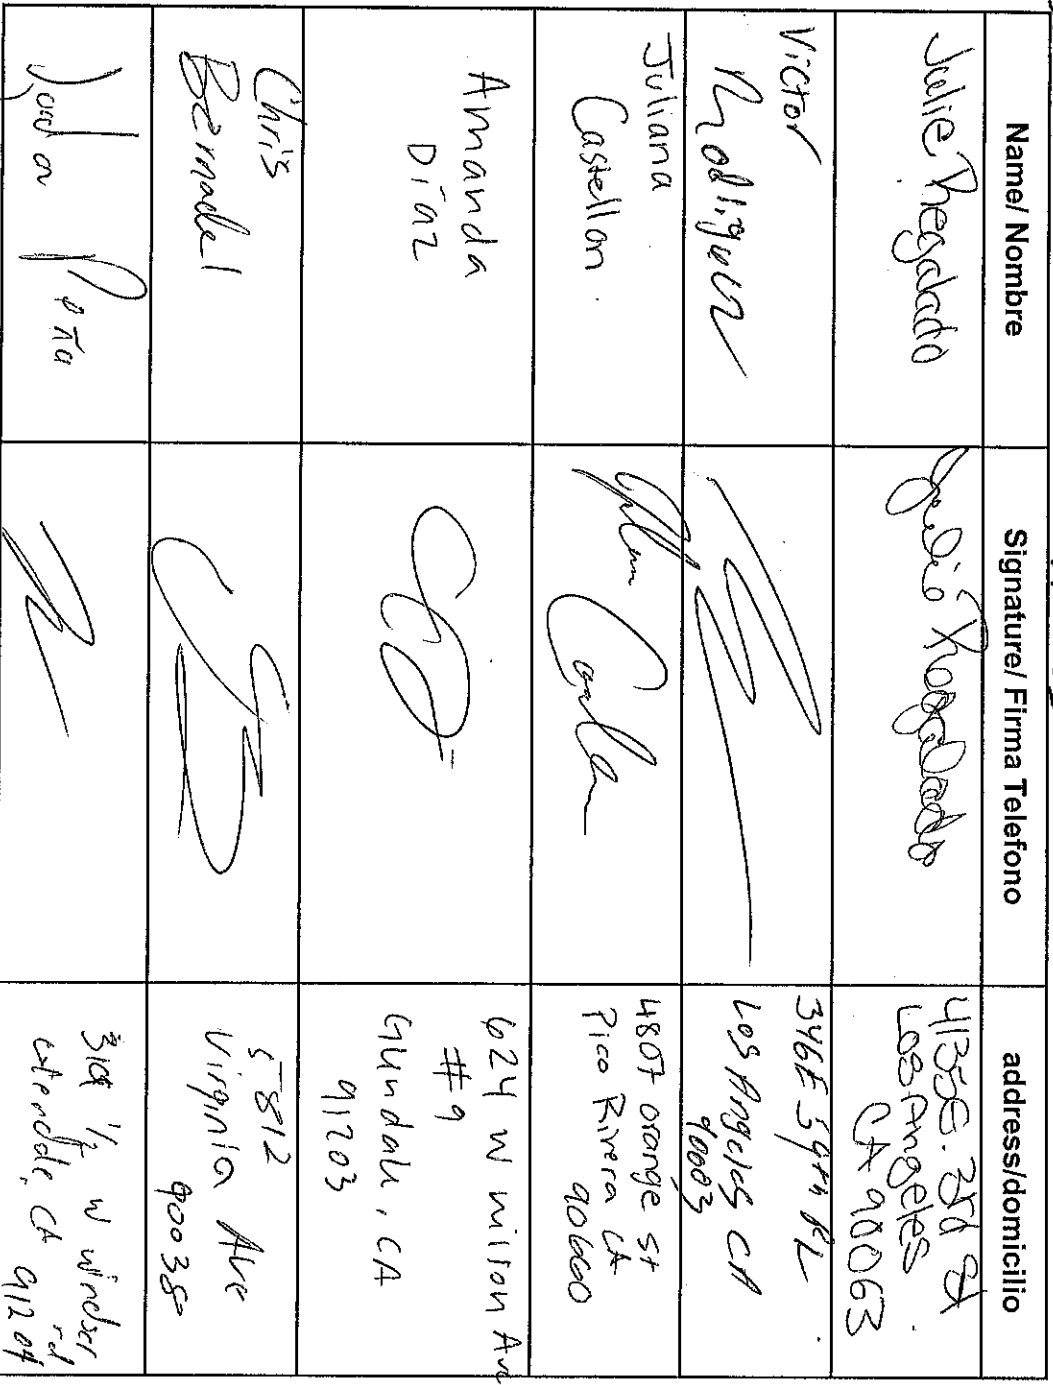 Name/ Nombre
Signature/ Firma Telefono
address/domicilio
Julie Regalado
Julie Regalado
4135 E. 3rd St
Los Angeles
CA 90063
Victor
Rodriguez
346 E 59th PL
Los Angeles CA
90003
Juliana
Castellon
4807 orange st
Pico Rivera CA
90660
Amanda
Díaz
624 W Wilson Ave
#9
Glendale, CA
91203
Chris
Bermudel
5812
Virginia Ave
90038
Peña
1/2 W Windsor
rd
CA 91204